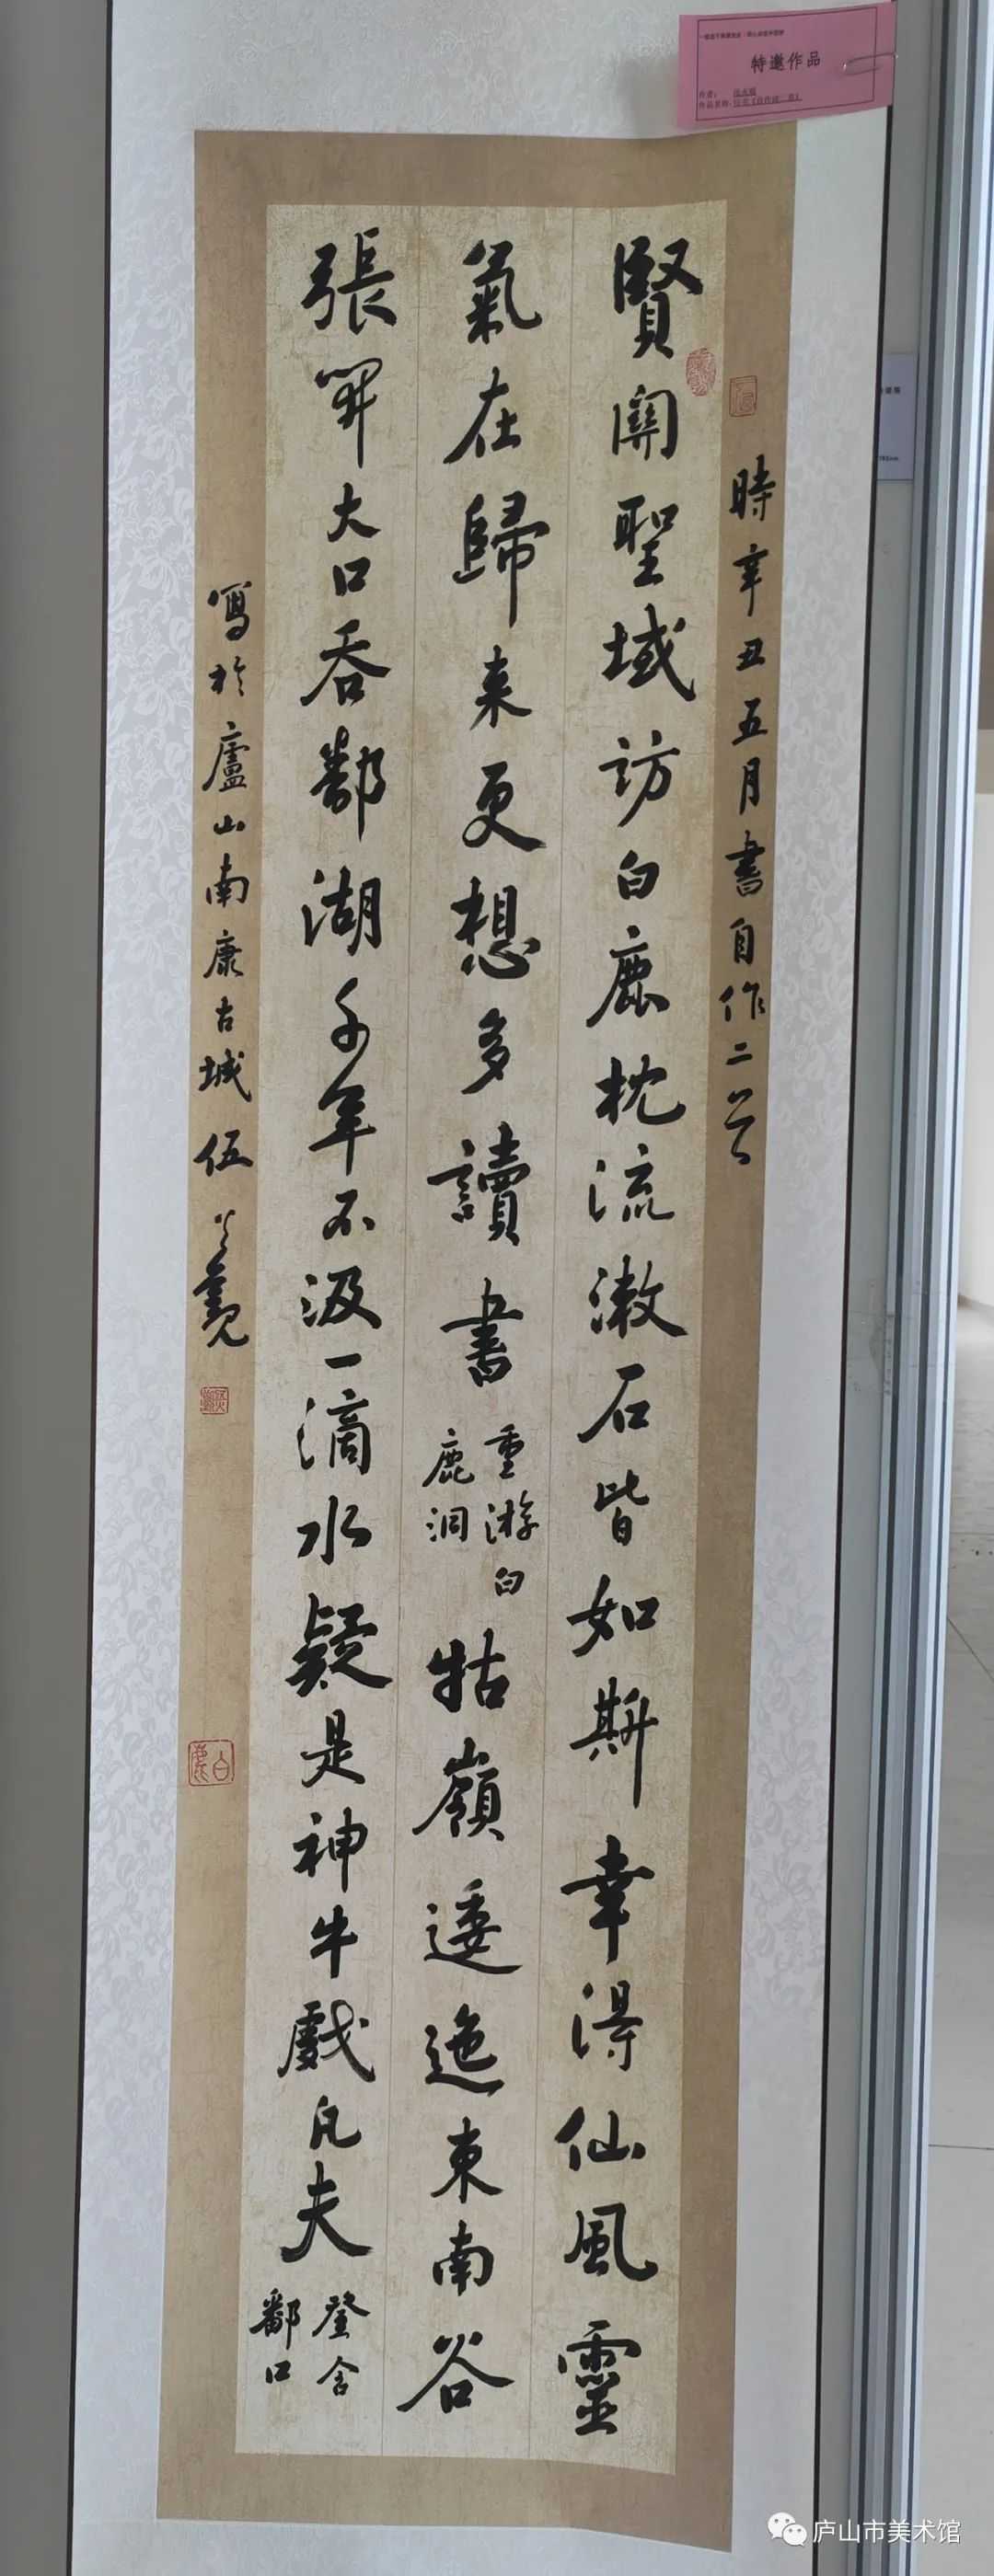 特邀作品
作者：
作品名称：
時辛丑五月書自作二首
賢關聖域訪白鹿枕流漱石皆如斯幸得仙風靈
氣在歸來更想多讀書
重游白
鹿洞
牯嶺逶迤東南谷
張開大口吞鄱湖千年不汲一滴水疑是神牛戲凡夫
登含
鄱口
寫於廬山南康古城伍
白鹿
庐山市美术馆